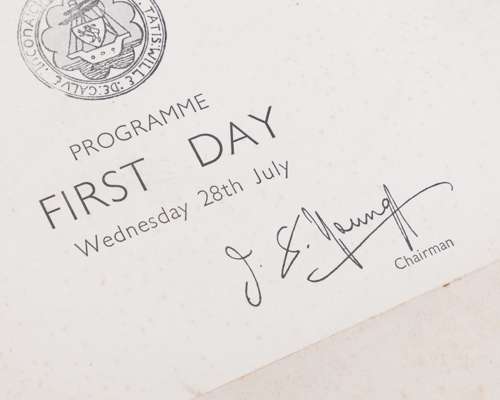 TATIS:WILLE:DE:CALVE
PROGRAMME
FIRST DAY
Wednesday 28th July
J. E. Young
Chairman